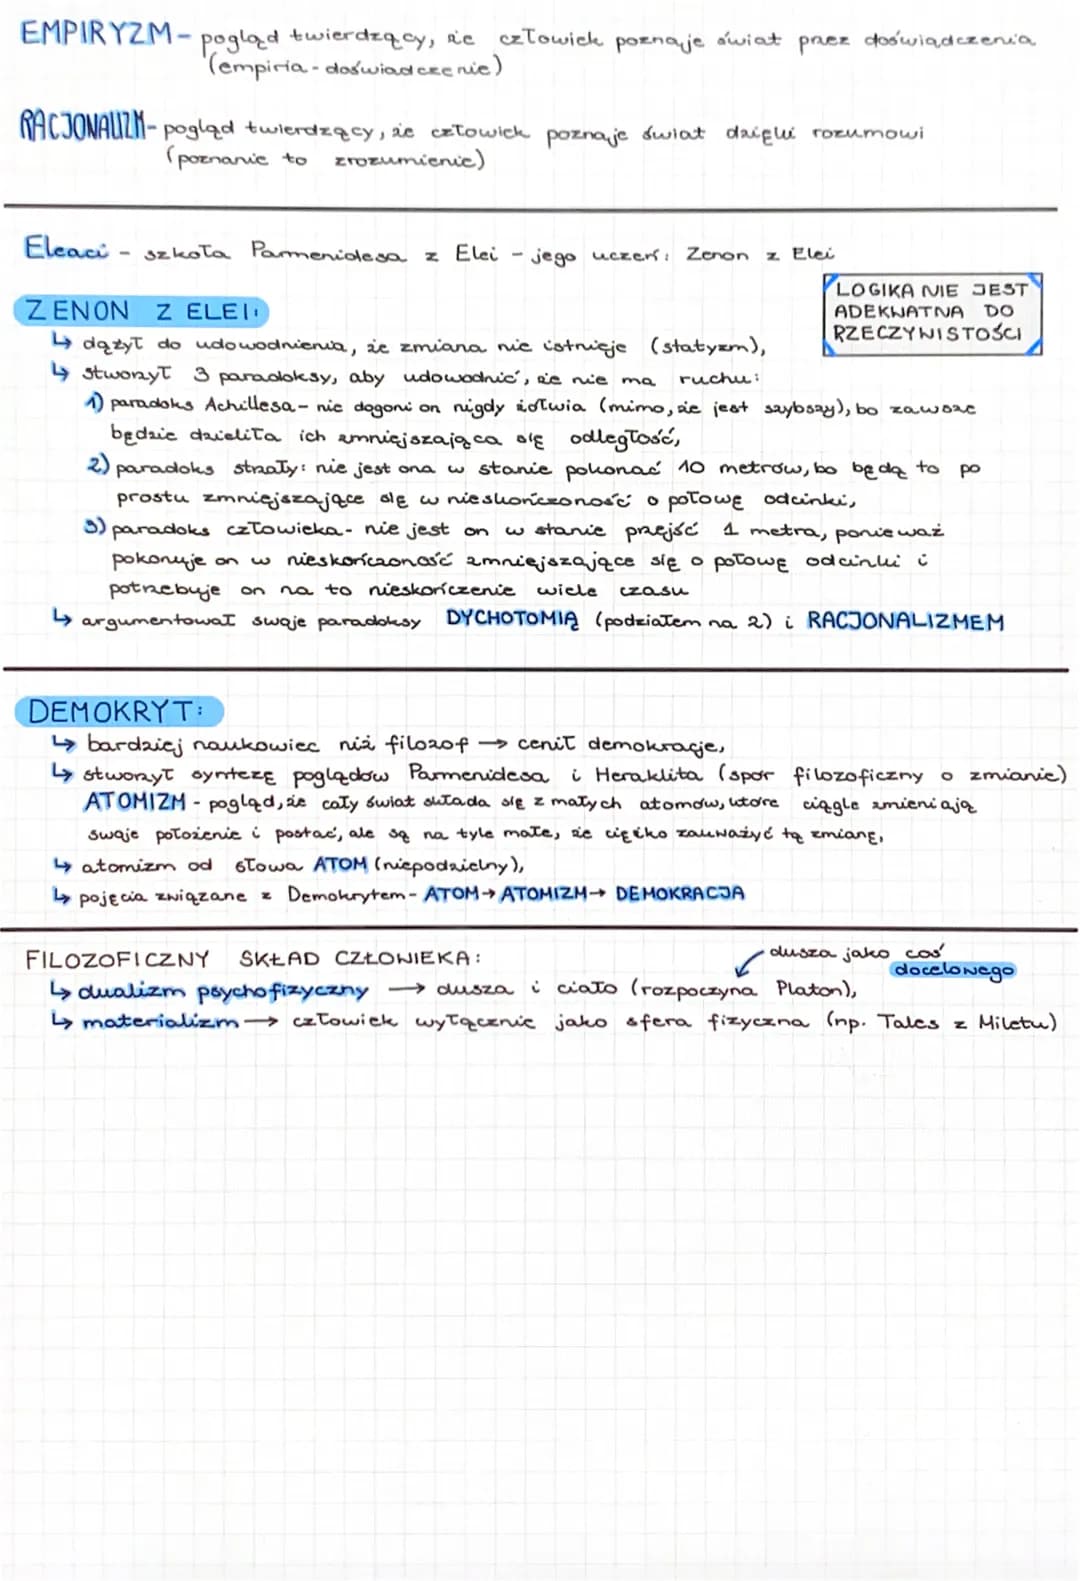 EMPIRYZM - pogląd twierdzący, że człowiek poznaje świat przez doświadczenia
(empiria - doświadczenie)
RACJONALIZM - pogląd twierdzący, że człowiek poznaje świat dzięki rozumowi
(poznanie to zrozumienie)
Eleaci - szkoła Parmenidesa z Elei - jego uczeń: Zenon z Elei
LOGIKA NIE JEST
ADEKWATNA DO
RZECZYWISTOŚCI
ZENON Z ELEI:
↳ dążył do udowodnienia, że zmiana nie istnieje (statyzm),
↳ stworzył 3 paradoksy, aby udowodnić, że nie ma ruchu:
1) paradoks Achillesa - nie dogoni on nigdy żółwia (mimo, że jest szybszy), bo zawsze
będzie dzieliła ich zmniejszająca się odległość,
2) paradoks strzały: nie jest ona w stanie pokonać 10 metrów, bo będą to po
prostu zmniejszające się w nieskończoność o połowę odcinki,
3) paradoks człowieka - nie jest on w stanie przejść 1 metra, ponieważ
pokonuje on w nieskończoność zmniejszające się o połowę odcinki i
potrzebuje on na to nieskończenie wiele czasu
↳ argumentował swoje paradoksy DYCHOTOMIĄ (podziałem na 2) i RACJONALIZMEM
DEMOKRYT:
↳ bardziej naukowiec niż filozof → cenił demokrację,
↳ stworzył syntezę poglądów Parmenidesa i Heraklita (spór filozoficzny o zmianie)
ATOMIZM - pogląd, że cały świat składa się z małych atomów, które ciągle zmieniają
swoje położenie i postać, ale są na tyle małe, że ciężko zauważyć tą zmianę,
↳ atomizm od słowa ATOM (niepodzielny),
↳ pojęcia związane z Demokrytem - ATOM → ATOMIZM → DEMOKRACJA
FILOZOFICZNY SKŁAD CZŁOWIEKA:
dusza jako coś
docelowego
↳ dualizm psychofizyczny → dusza i ciało (rozpoczyna Platon),
↳ materializm → człowiek wyłącznie jako sfera fizyczna (np. Tales z Miletu)